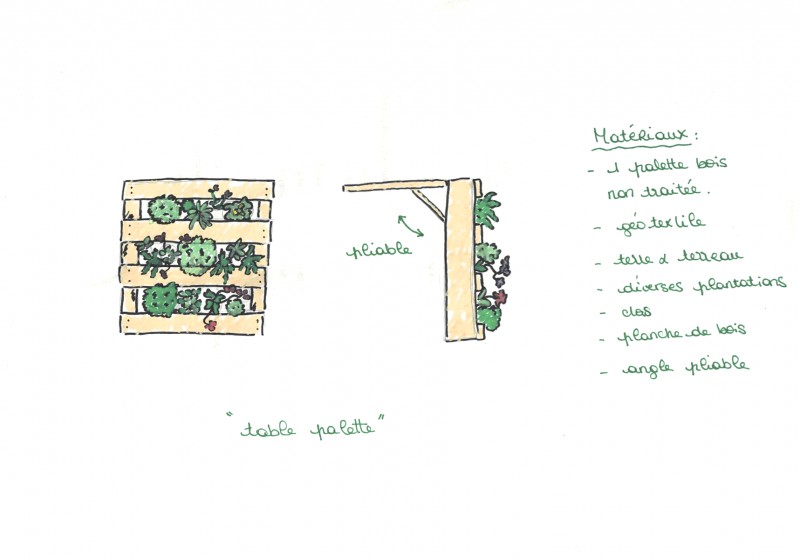 Matériaux :
- 1 palette bois
non traitée.
- géotextile
- terre & terreau
- diverses plantations
- clos
- planche de bois
- angle pliable
pliable
"table palette"